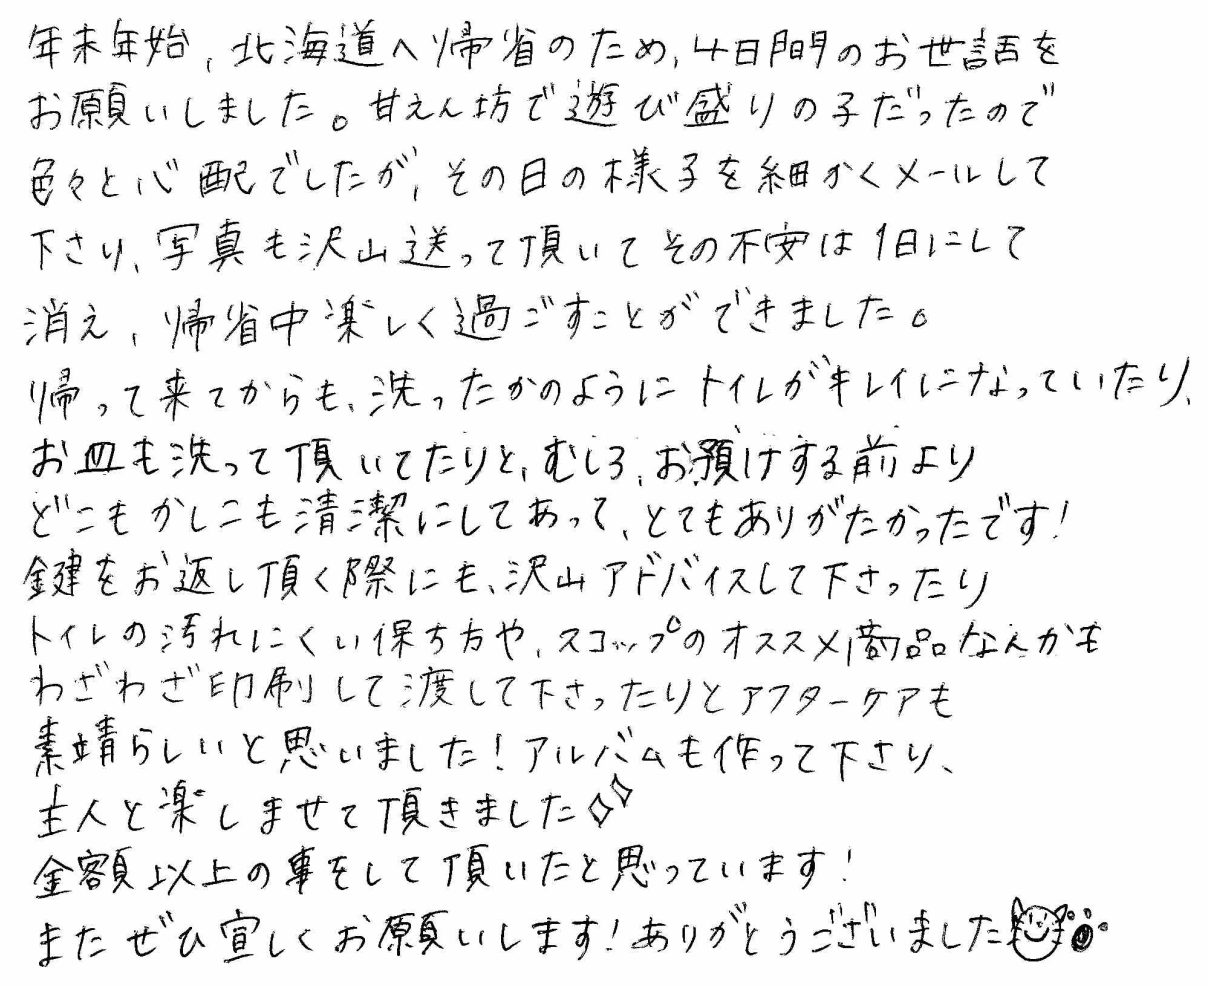 年末年始、北海道へ帰省のため、4日間のお世話を
お願いしました。甘えん坊で遊び盛りの子だったので
色々と心配でしたが、その日の様子を細かくメールして
下さり、写真も沢山送って頂いてその不安は1日にして
消え、帰省中楽しく過ごすことができました。
帰って来てからも、洗ったかのようにトイレがキレイになっていたり、
お皿も洗って頂いてたりと、むしろ、お預けする前より
どこもかしこも清潔にしてあって、とてもありがたかったです!
鍵をお返し頂く際にも、沢山アドバイスして下さったり
トイレの汚れにくい保ち方や、スコップのオススメ商品なんかも
わざわざ印刷して渡して下さったりとアフターケアも
素晴らしいと思いました!アルバムも作って下さり、
主人と楽しませて頂きました
金額以上の事をして頂いたと思っています!
またぜひ宜しくお願いします!ありがとうございました